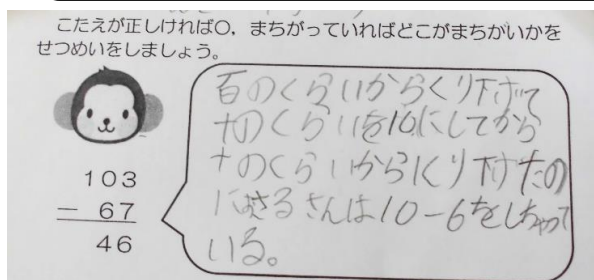 こたえが正しければ○，まちがっていればどこがまちがいかを
せつめいをしましょう。
103
− 67
46
百のくらいからくり下げて
十のくらいを10にしてから
十のくらいからくり下げたの
にさるさんは10−6をしちゃって
いる。